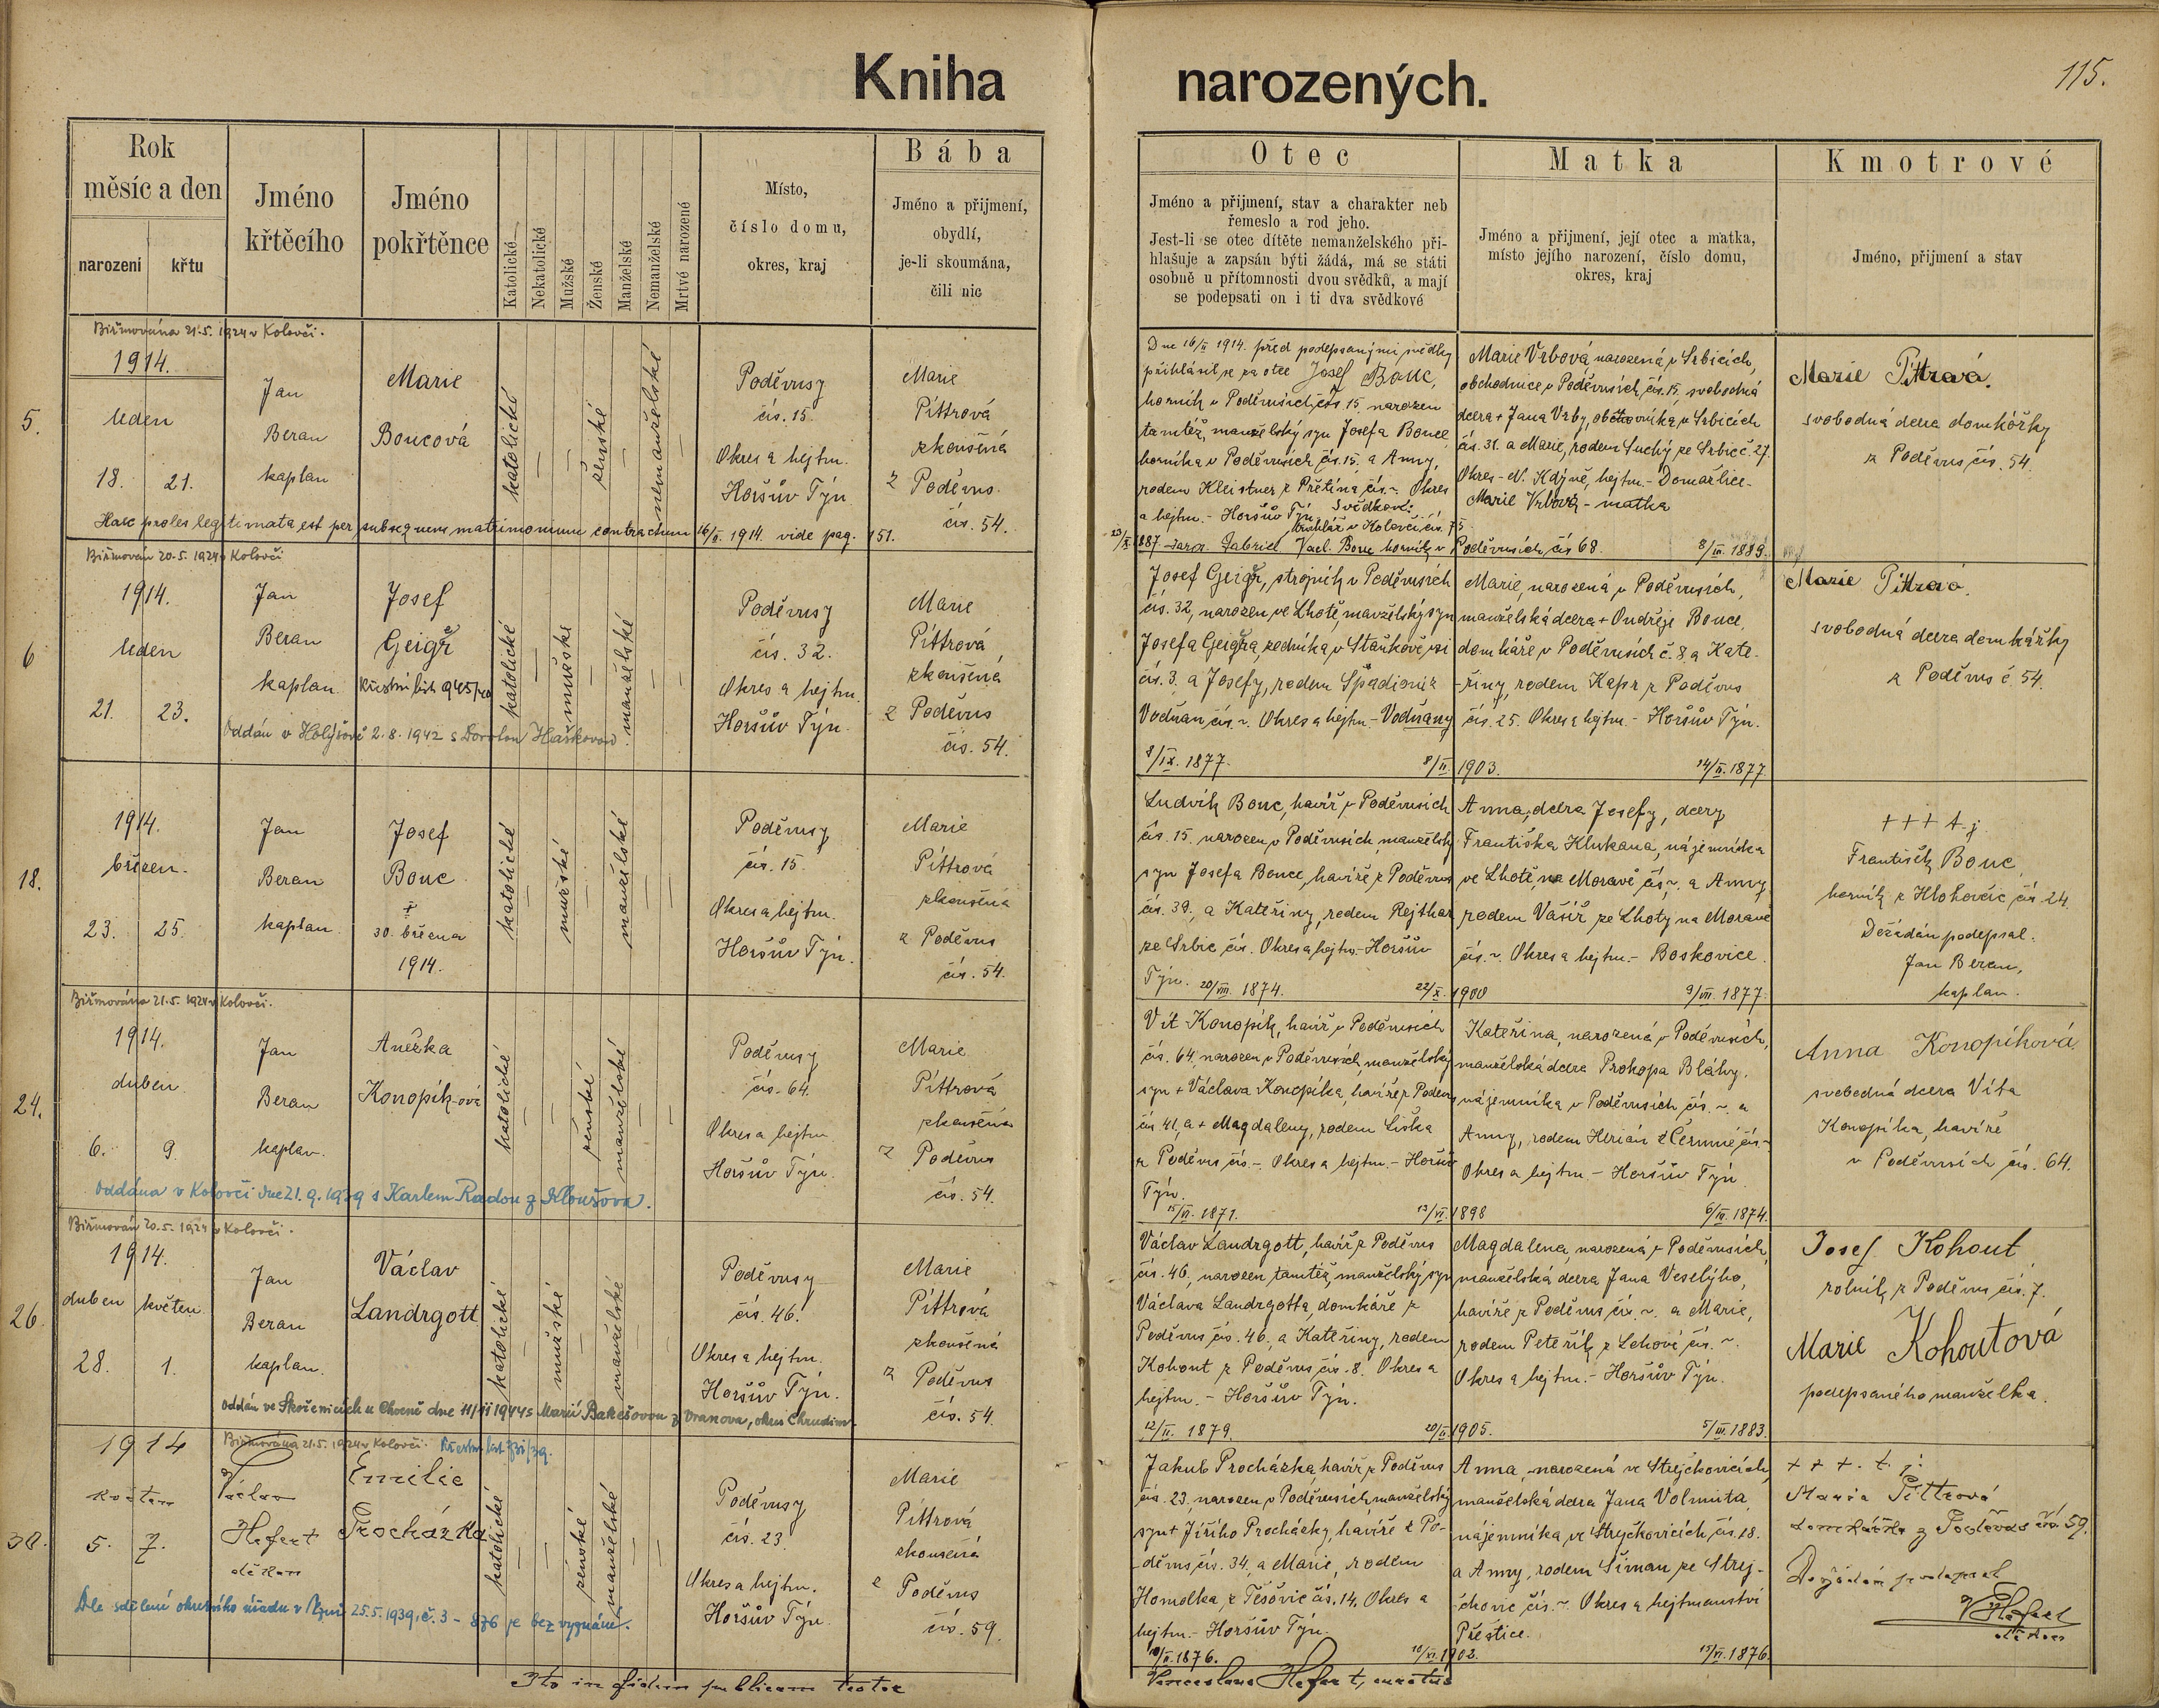 Kniha narozených.
115.
Rok
měsíc a den
narození
křtu
Jméno
křtěcího
Jméno
pokřtěnce
Katolické
Nekatolické
Mužské
Ženské
Manželské
Nemanželské
Mrtvě narozené
Místo,
číslo domu,
okres, kraj
Bába
Jméno a přijmení,
obydlí,
je-li skoumána,
čili nic
Otec
Jméno a přijmení, stav a charakter neb
řemeslo a rod jeho.
Jest-li se otec dítěte nemanželského při-
hlašuje a zapsán býti žádá, má se státi
osobně u přítomnosti dvou svědků, a mají
se podepsati on i ti dva svědkové
Matka
Jméno a přijmení, její otec a matka,
místo jejího narození, číslo domu,
okres, kraj
Kmotrové
Jméno, přijmení a stav
Biřmována 21.5. 1924 v Kolovči.
5.
1914.
leden
18. 21.
Jan
Beran
kaplan
Marie
Boucová
katolické
ženské
nemanželské
Poděvusy
čís. 15.
Okres a hejtm.
Horšův Týn
Marie
Pittrová
zkoušená
z Poděvus
čís. 54.
Haec proles legitimata est per subsequens matrimonium contractum 16/II. 1914. vide pag. 151.
Dne 16/II 1914. před podepsanými svědky
přihlásil se za otce Josef Bouc,
horník v Poděvusích, čís. 15. narozen
tamtéž, manželský syn Josefa Bouce,
horníka v Poděvusích čís. 15. a Anny,
rodem Kleistner z Přetína čís. ~. Okres
a hejtm. - Horšův Týn. Svědkové:
v Kolovči čís. 75.
Vacl. Bouc horník v Poděvusích čís 68.
8/III. 1889.
Marie Vrbová, narozená v Srbicích,
obchodnice v Poděvusích, čís. 15. svobodná
dcera + Jana Vrby, obchodníka v Srbicích
čís. 31. a Marie, rodem Suchý ze Srbic č. 27.
Okres - N. Kdýně, hejtm. - Domažlice -
Marie Vrbová - matka
Marie Pittrová.
svobodná dcera domkářky
z Poděvus čís. 54.
Biřmován 20.5. 1924 v Kolovči
6
1914.
leden
21. 23.
Jan
Beran
kaplan.
Josef
Geiger
Křestní list 945/40
katolické
mužské
manželské
Poděvusy
čís. 32.
Okres a hejtm.
Horšův Týn.
Marie
Pittrová
zkoušená
z Poděvus
čís. 54.
Oddán v Holýšově 2.8. 1942 s Haškovou.
Josef Geiger, strojník v Poděvusích
čís. 32, narozen ve Lhotě, manželský syn
Josefa Geigra, zedníka v Staňkově vsi
čís. 3, a Josefy, rodem Špadioník
Vodňan, čís ~. Okres a hejtm. - Vodňany
8/IX. 1877.
8/II. 1903.
Marie, narozená v Poděvusích,
manželská dcera + Ondřeje Bouce,
domkáře v Poděvusích č. 8 a Kate-
řiny, rodem Kapr z Poděvus
čís. 25. Okres a hejtm. - Horšův Týn.
14/II. 1877
Marie Pittrová.
svobodná dcera domkářky
z Poděvus č. 54.
18.
1914.
březen.
23. 25.
Jan
Beran
kaplan.
Josef
Bouc
+
30. března
1914.
katolické
mužské
manželské
Poděvusy
čís. 15.
Okres a hejtm.
Horšův Týn.
Marie
Pittrová
zkoušená
z Poděvus
čís. 54.
Ludvík Bouc, havíř v Poděvusích
čís. 15. narozen v Poděvusích, manželský
syn Josefa Bouce, havíře z Poděvus
čís. 39., a Kateřiny, rodem Rejthar
ze Srbic čís. Okres a hejtm. - Horšův
Týn. 20/VIII. 1874.
22/X. 1900
Anna, dcera Josefy, dcery
Františka Klukana, nájemníka
ve Lhotě, na Moravě čís ~, a Anny
rodem Vašíř ze Lhoty na Moravě
čís. ~. Okres a hejtm. - Boskovice.
9/VII. 1877.
+++ t. j.
František Bouc,
horník z Hlohovčic čís. 24.
Dožádán podepsal.
Jan Beran,
kaplan.
Biřmována 21.5. 1924 v Kolovči.
24.
1914.
duben.
6. 9.
Jan
Beran
kaplan.
Anežka
Konopík-ová
katolické
ženské
manželské
Poděvusy
čís. 64.
Okres a hejtm.
Horšův Týn.
Marie
Pittrová
zkoušená
z Poděvus
čís. 54.
Oddána v Kolovči dne 21.9. 1939 s Karlem Radou z
Vít Konopík, havíř v Poděvusích
čís. 64, narozen v Poděvusích, manželský
syn + Václava Konopíka, havíře z Poděvus
čís 41, a + Magdaleny, rodem Liška
z Poděvus čís. -. Okres a hejtm. - Horšův
Týn.
15/VI. 1871.
13/VI. 1898
Kateřina, narozená v Poděvusích,
manželská dcera Prokopa Bláhy,
nájemníka v Poděvusích čís. ~. a
Anny, rodem Herián z Čermné čís -
Okres a hejtm - Horšův Týn
6/III. 1874.
Anna Konopíková.
svobodná dcera Víta
Konopíka, havíře
v Poděvusích čís. 64.
Biřmován 20.5. 1924 v Kolovči.
26.
1914.
duben květen
28. 1.
Jan
Beran
kaplan.
Václav
Landrgott
katolické
mužské
manželské
Poděvusy
čís. 46.
Okres a hejtm.
Horšův Týn.
Marie
Pittrová
zkoušená
z Poděvus
čís. 54.
Oddán ve Skořenicích u Chocně dne 11/II 1944 s Marií Bakešovou z Vranova, okres Chrudim.
Václav Landrgott, havíř z Poděvus
čís. 46, narozen tamtéž, manželský syn
Václava Landrgotta, domkáře z
Poděvus čís. 46, a Kateřiny, rodem
Kohout z Poděvus čís. 8. Okres a
hejtm. - Horšův Týn.
12/II. 1879.
20/II. 1905.
Magdalena, narozená v Poděvusích
manželská dcera Jana Veselýho,
havíře z Poděvus, čís. ~. a Marie,
rodem Peteřík z čís. ~.
Okres a hejtm. - Horšův Týn.
5/III. 1883.
Josef Kohout,
rolník z Poděvus čís. 7.
Marie Kohoutová
podepsaného manželka.
Biřmována 21.5. 1924 v Kolovči. Křestní list 731/39.
30.
1914
květen
5. 7.
Václav
Hefert
děkan
Emilie
Procházka
katolické
ženské
manželské
Poděvusy
čís. 23.
Okres a hejtm.
Horšův Týn.
Marie
Pittrová
zkoušená
z Poděvus
čís. 59.
Dle sdělení okresního úřadu v 25.5. 1939, č. 3 - 876 je bez vyznání.
Jakub Procházka, havíř z Poděvus
čís. 23. narozen v Poděvusích, manželský
syn + Jiřího Procházky, havíře z Po-
děvus čís. 34, a Marie, rodem
Homolka z Těšovic čís. 14. Okres a
hejtm. - Horšův Týn.
10/XI. 1902.
Anna, narozená ve Strejčkovicích,
manželská dcera Jana Volmuta,
nájemníka ve Strejčkovicích, čís. 18.
a Anny, rodem Šiman ze Strej-
čkovic čís. ~. Okres a hejtmanství
Přeštice.
15/VI. 1876.
+ + +. t. j:
Marie Pittrová
domkářka z Poděvus čís. 59.
Dožádán podepsal
V Hefert
děkan
Ita in fidem publicam testor
Venceslaus Hefert, curatus